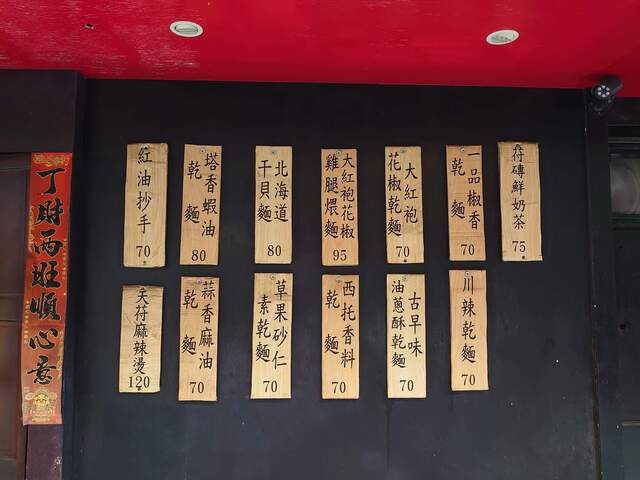 丁財兩旺順心意
紅油抄手
70
塔香蝦油
乾麵
80
北海道
干貝麵
80
大紅袍花椒
雞腿煨麵
95
大紅袍
花椒乾麵
70
一品椒香
乾麵
70
符磚鮮奶茶
75
天符麻辣燙
120
蒜香麻油
乾麵
70
草果砂仁
素乾麵
70
西托香料
乾麵
70
古早味
油蔥酥乾麵
70
川辣乾麵
70